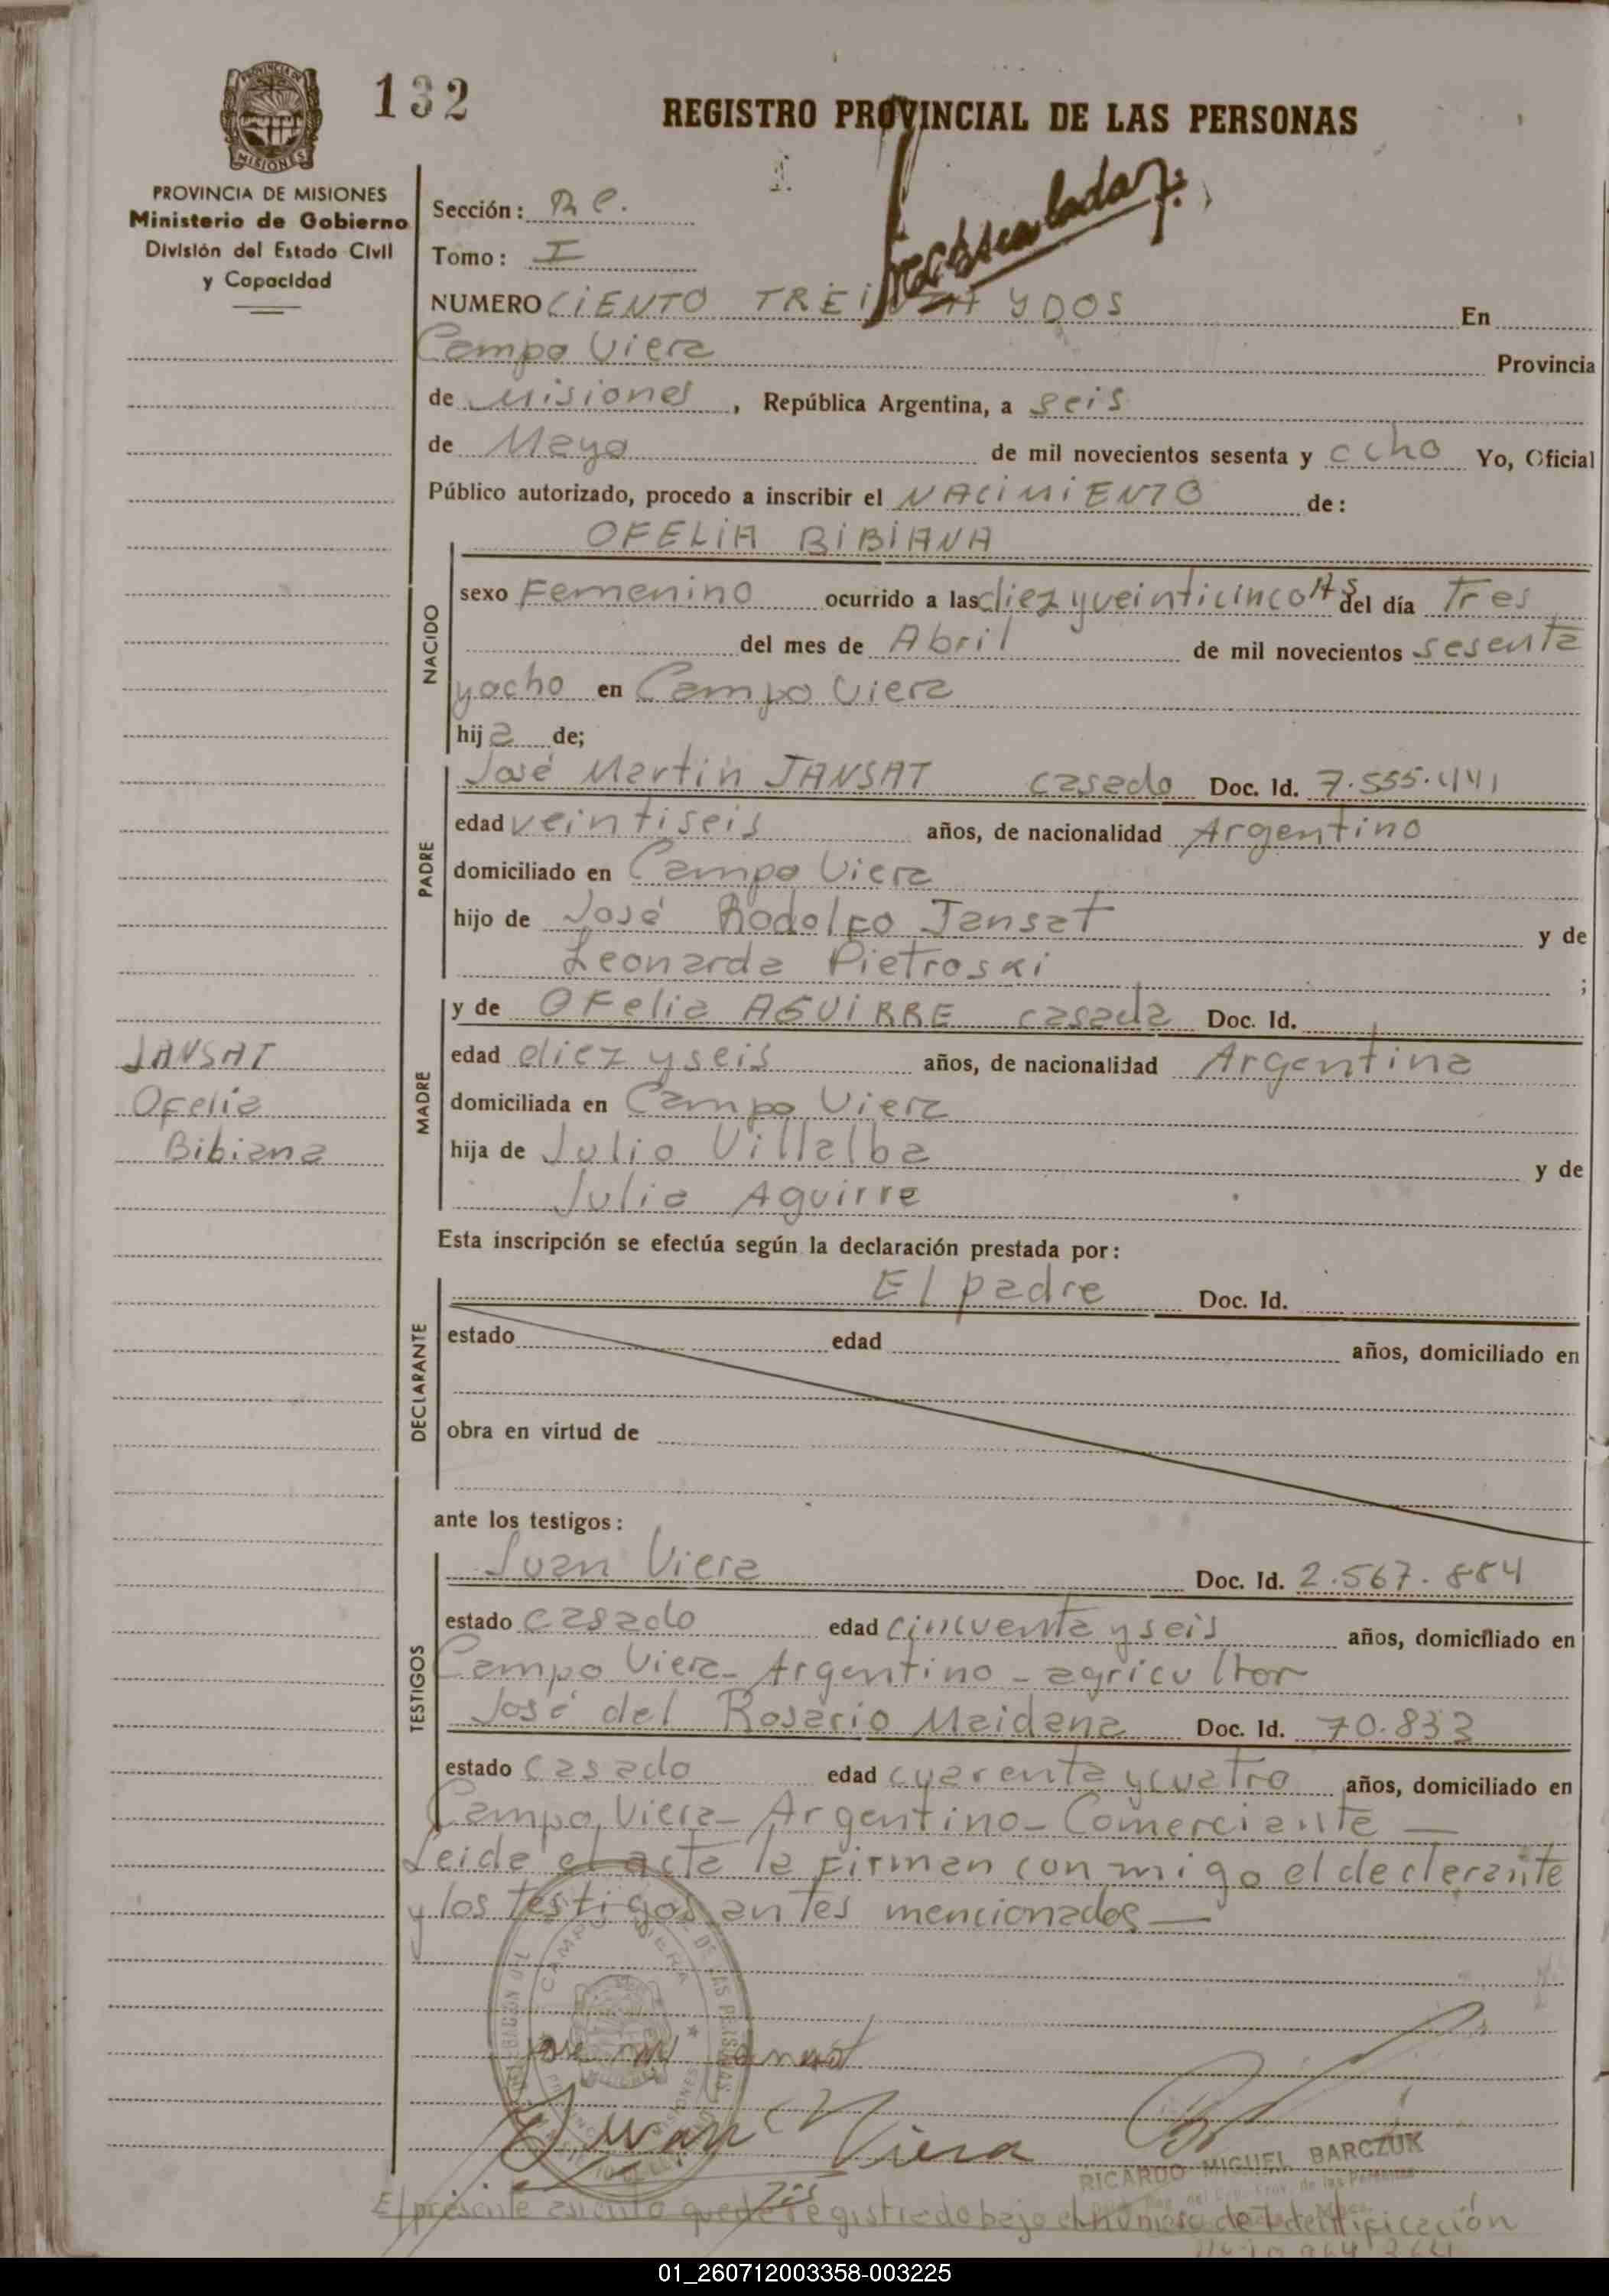 132
REGISTRO PROVINCIAL DE LAS PERSONAS
PROVINCIA DE MISIONES
Ministerio de Gobierno
División del Estado Civil
y Capacidad
Sección:
Tomo: I
NUMERO CIENTO TREINTA Y DOS En
Campo Viera Provincia
de Misiones, República Argentina, a seis
de Mayo de mil novecientos sesenta y ocho Yo, Oficial
Público autorizado, procedo a inscribir el NACIMIENTO de:
OFELIA BIBIANA
NACIDO
sexo Femenino ocurrido a las diez y veinticinco Hs del día Tres
del mes de Abril de mil novecientos sesenta
y ocho en Campo Viera
hija de;
PADRE
José Martin JANSAT casado Doc. Id. 7.555.441
edad veintiseis años, de nacionalidad Argentino
domiciliado en Campo Viera
hijo de José Rodolfo Jansat y de
Leonarda Pietroski ;
MADRE
y de OFelia AGUIRRE casada Doc. Id.
edad diez y seis años, de nacionalidad Argentina
domiciliada en Campo Viera
hija de Julio Villalba y de
Julia Aguirre
JANSAT
Ofelia
Bibiana
Esta inscripción se efectúa según la declaración prestada por:
DECLARANTE
El padre Doc. Id.
estado edad años, domiciliado en
obra en virtud de
ante los testigos:
TESTIGOS
Juan Viera Doc. Id. 2.567.884
estado casado edad cincuenta y seis años, domiciliado en
Campo Viera - Argentino - agricultor
José del Rosario Maidana Doc. Id. 70.833
estado casado edad cuarenta y cuatro años, domiciliado en
Campo Viera - Argentino - Comerciante —
Leida el acta la firman con migo el declarante
y los testigos antes mencionados —
Juan Viera
RICARDO MIGUEL BARCZUK
El presente asiento queda registrado bajo el número de Identificación
01_260712003358-003225